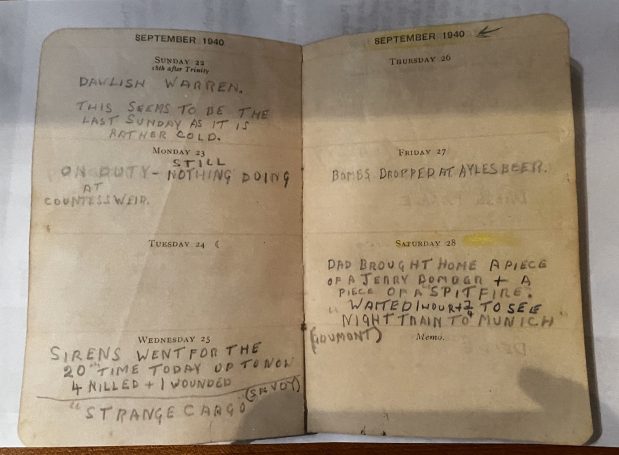 SEPTEMBER 1940
SUNDAY 22
18th after Trinity
DAWLISH WARREN.
THIS SEEMS TO BE THE
LAST SUNDAY AS IT IS
RATHER COLD.
MONDAY 23
STILL
ON DUTY - NOTHING DOING
AT
COUNTESS WEIR.
TUESDAY 24 (
WEDNESDAY 25
SIRENS WENT FOR THE
20" TIME TODAY UP TO NOW
4 KILLED + 1 WOUNDED
(SAVOY)
"STRANGE CARGO
SEPTEMBER 1940
THURSDAY 26
FRIDAY 27
BOMBS DROPPED AT AYLESBEER.
SATURDAY 28
DAD BROUGHT HOME A PIECE
OF A JERRY BOMBER + A
PIECE OF A "SPITFIRE".
WAITED 1 HOUR + TO SEE
"NIGHT TRAIN TO MUNICH"
(GUMONT)
Memo.